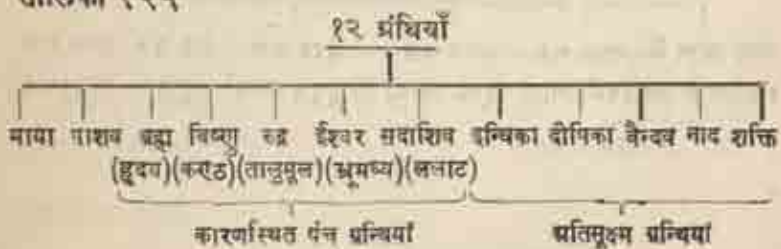 १२ ग्रंथियाँ
माया पाशव ब्रह्मा विष्णु रुद्र ईश्वर सदाशिव इन्धिका दीपिका बैन्दव नाद शक्ति
(हृदय)(कण्ठ)(तालुमूल)(भ्रूमध्य)(ललाट)
कारणस्थित पंच ग्रन्थियां अतिसूक्ष्म ग्रन्थियां